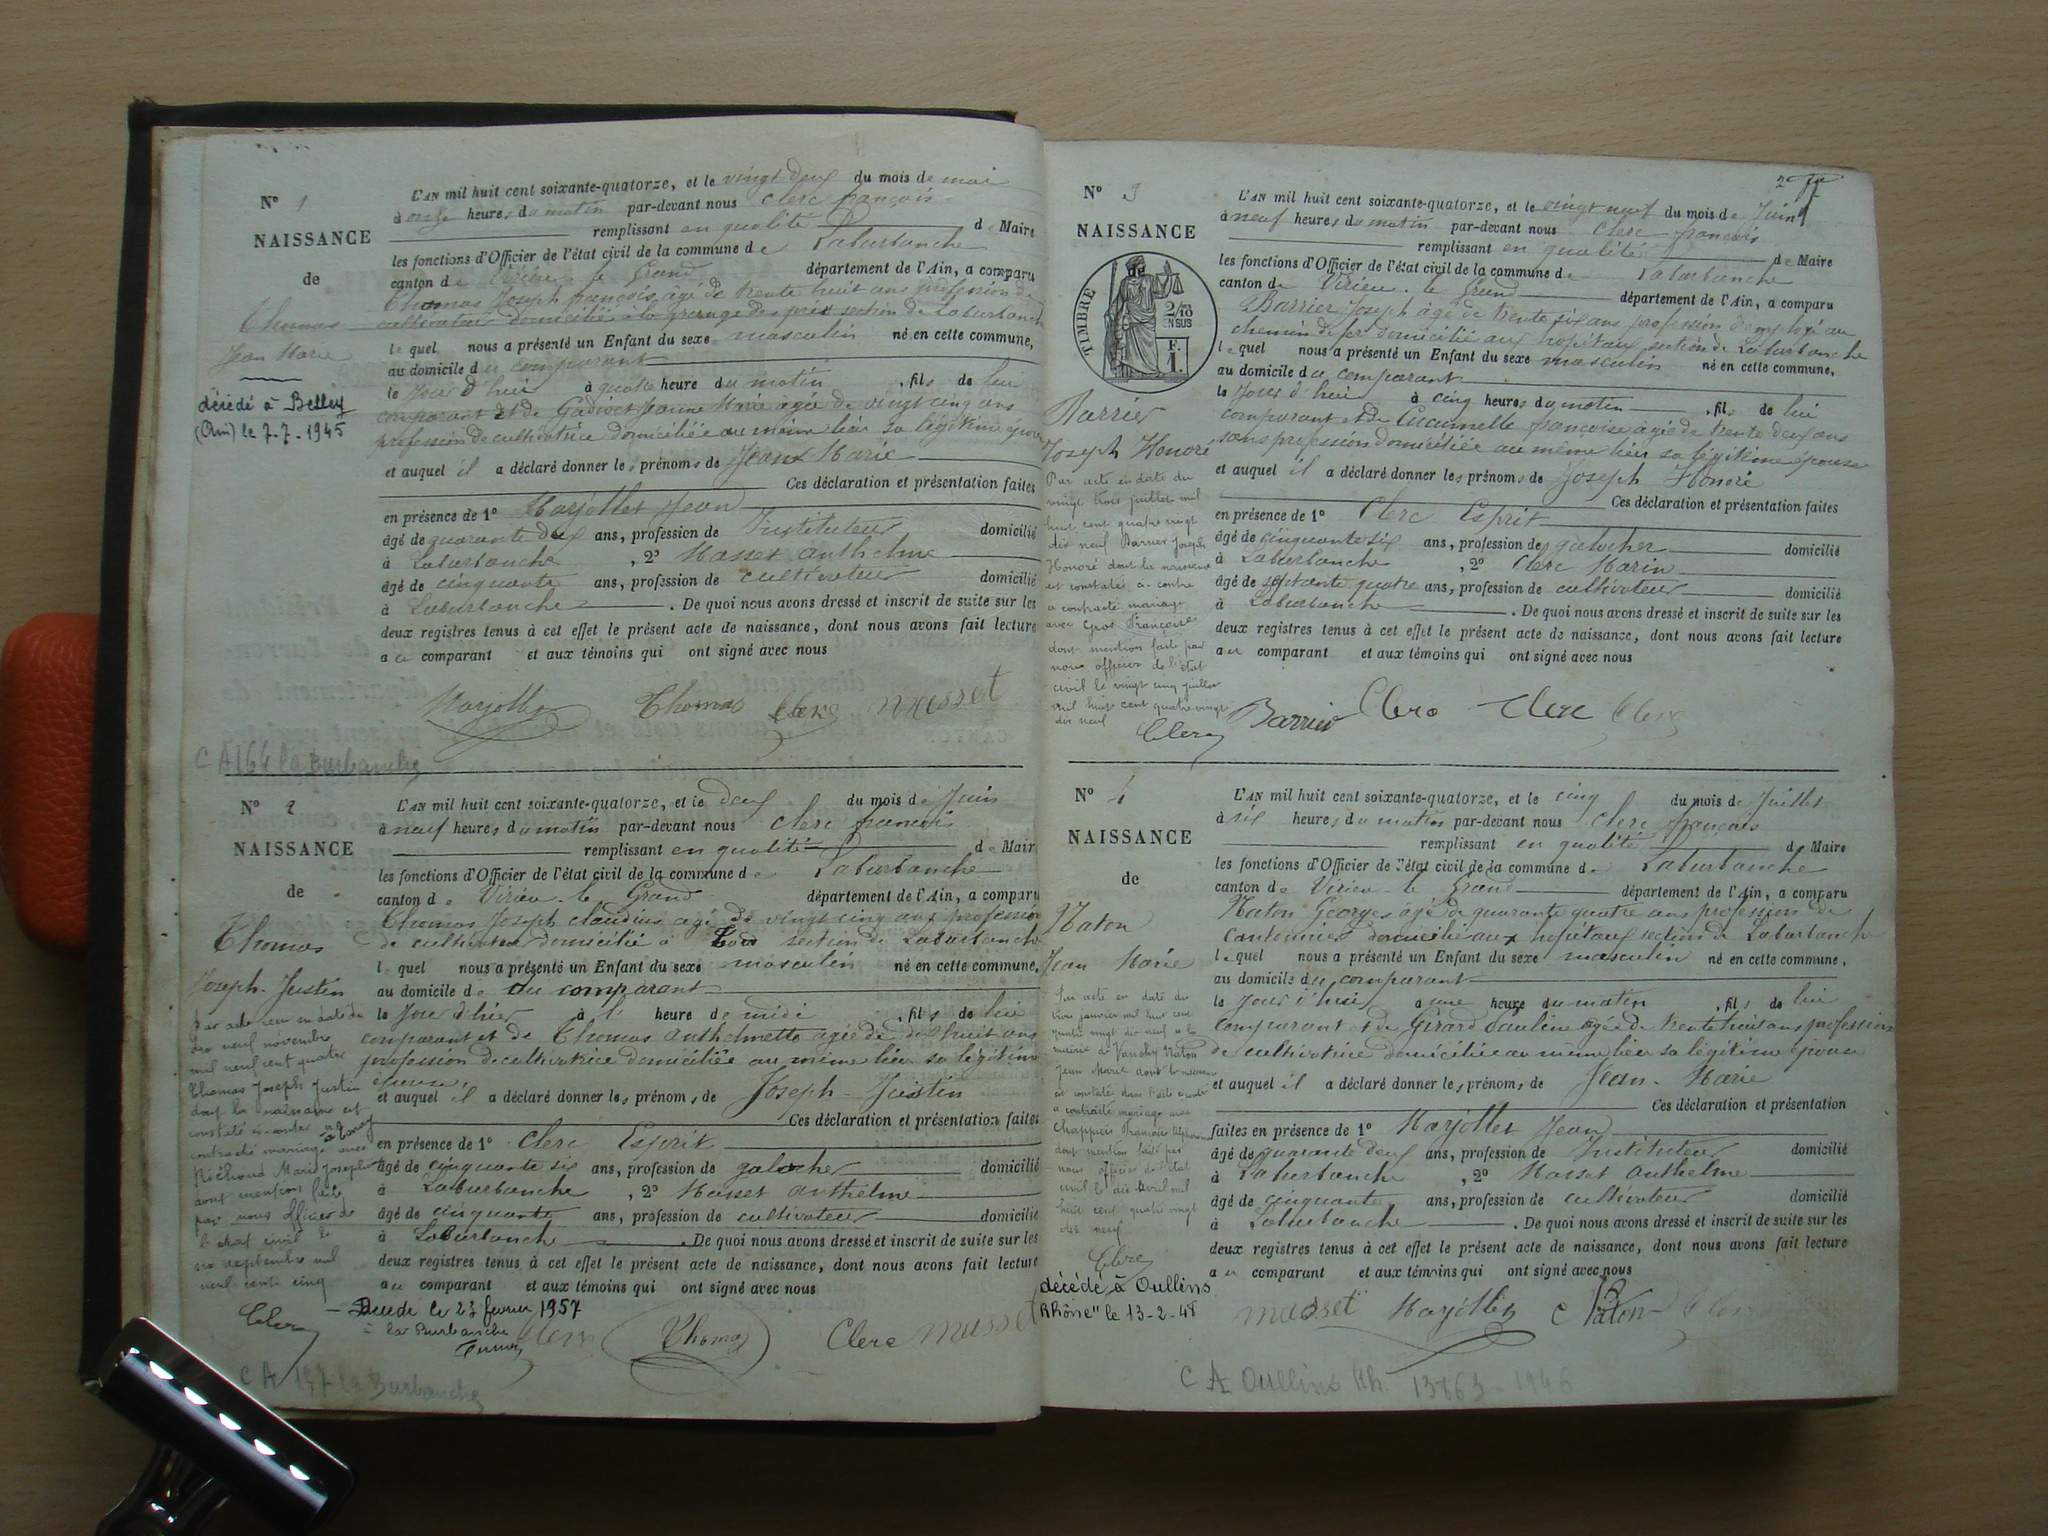 N° 1
NAISSANCE
de
Thomas
Jean Marie
décédé à Belley
(Ain) le 7-7-1945
L'AN mil huit cent soixante-quatorze, et le vingt deux du mois de mai
à onze heures du matin par-devant nous Clerc françois
remplissant en qualité de Maire
les fonctions d'Officier de l'état civil de la commune de Laburbanche
canton de Virieu le Grand département de l'Ain, a comparu
Thomas Joseph françois âgé de trente huit ans profession de
cultivateur domicilié à la grange des prés section de Laburbanche
lequel nous a présenté un Enfant du sexe masculin né en cette commune,
au domicile du comparant
le jour d'hui à quatre heure du matin, fils de lui
comparant et de Jeanne Marie agée de vingt cinq ans
profession de cultivatrice domiciliée au même lieu sa légitime épouse
et auquel il a déclaré donner les prénoms de Jean Marie
Ces déclaration et présentation faites
en présence de 1° Marjollet Jean
âgé de quarante deux ans, profession de Instituteur domicilié
à Laburbanche, 2° Masset anthelme
âgé de cinquante ans, profession de cultivateur domicilié
à Laburbanche. De quoi nous avons dressé et inscrit de suite sur les
deux registres tenus à cet effet le présent acte de naissance, dont nous avons fait lecture
au comparant et aux témoins qui ont signé avec nous
Marjollet Thomas Clerc masset
CA 164 la Burbanche
N° 2
NAISSANCE
de
Thomas
Joseph-Justin
Par acte reçu en date du
dix neuf novembre
mil neuf cent quatre
Thomas Joseph Justin
dont la naissance est
constaté ci-contre a
contracté mariage avec
Marie Josephte
dont mention faite
par nous officier de
l'état civil le
septembre mil
neuf cent cinq
Clerc
L'AN mil huit cent soixante-quatorze, et le deux du mois de Juin
à neuf heures du matin par-devant nous Clerc françois
remplissant en qualité de Maire
les fonctions d'Officier de l'état civil de la commune de Laburbanche
canton de Virieu-le Grand département de l'Ain, a comparu
Thomas Joseph claudius agé de vingt cinq ans profession
de cultivateur domicilié à section de Laburbanche
lequel nous a présenté un Enfant du sexe masculin né en cette commune,
au domicile de du comparant
le Jour d'hier à 1 heure de midi, fils de lui
comparant et de Thomas Anthelmette agée de dix huit ans
profession de cultivatrice domiciliée au même lieu sa légitime
épouse,
et auquel il a déclaré donner les prénoms de Joseph-Justin
Ces déclaration et présentation faites
en présence de 1° Clerc Esprit
âgé de cinquante six ans, profession de galocher domicilié
à Laburbanche, 2° Masset anthelme
âgé de cinquante ans, profession de cultivateur domicilié
à Laburbanche. De quoi nous avons dressé et inscrit de suite sur les
deux registres tenus à cet effet le présent acte de naissance, dont nous avons fait lecture
au comparant et aux témoins qui ont signé avec nous
- Décédé le 23 février 1957
à la Burbanche
Clerc Thomas Clerc masset
CA 137 la Burbanche
N° 3
NAISSANCE
TIMBRE
2/10
EN SUS
F.
1.
Barrier
Joseph Honoré
Par acte en date du
vingt trois juillet mil
huit cent quatre vingt
dix neuf Barrier Joseph
Honoré dont la naissance
est constatée ci-contre
a contracté mariage
avec Gros Françoise
dont mention faite par
nous officier de l'état
civil le vingt cinq juillet
mil huit cent quatre vingt
dix neuf
Clerc
L'AN mil huit cent soixante-quatorze, et le vingt neuf du mois de Juin
à neuf heures du matin par-devant nous Clerc françois
remplissant en qualité de Maire
les fonctions d'Officier de l'état civil de la commune de Laburbanche
canton de Virieu-le Grand département de l'Ain, a comparu
Barrier Joseph âgé de trente six ans profession d'employé au
chemin de fer domicilié aux hopitaux section de Laburbanche
lequel nous a présenté un Enfant du sexe masculin né en cette commune,
au domicile du comparant
le Jour d'hui à cinq heures du matin, fils de lui
comparant et de Cucumelle françoise âgée de trente deux ans
sans profession domiciliée au même lieu sa légitime épouse
et auquel il a déclaré donner les prénoms de Joseph Honoré
Ces déclaration et présentation faites
en présence de 1° Clerc Esprit
âgé de cinquante six ans, profession de galocher domicilié
à Laburbanche, 2° Clerc Marin
âgé de soixante quatre ans, profession de cultivateur domicilié
à Laburbanche. De quoi nous avons dressé et inscrit de suite sur les
deux registres tenus à cet effet le présent acte de naissance, dont nous avons fait lecture
au comparant et aux témoins qui ont signé avec nous
Barrier Clerc Clerc Clerc
N° 4
NAISSANCE
de
Naton
Jean Marie
Par acte en date du
trois janvier mil huit cent
quatre vingt dix neuf à la
mairie de Naton
Jean Marie dont la naissance
est constatée dans l'acte ci-contre
a contracté mariage avec
Chappuis Françoise
dont mention faite par
nous officier de l'état
civil le dix Avril mil
huit cent quatre vingt
dix neuf
Clerc
décédé à Oullins
"Rhône" le 13-2-48
L'AN mil huit cent soixante-quatorze, et le cinq du mois de Juillet
à six heures du matin par-devant nous Clerc français
remplissant en qualité de Maire
les fonctions d'Officier de l'état civil de la commune de Laburbanche
canton de Virieu-le Grand département de l'Ain, a comparu
Naton Georges âgé de quarante quatre ans profession de
cantonnier domicilié aux hopitaux section de Laburbanche
lequel nous a présenté un Enfant du sexe masculin né en cette commune,
au domicile du comparant
le Jour d'hui a une heure du matin, fils de lui
comparant et de Girard Pauline agée de trente huit ans profession
de cultivatrice domiciliée au même lieu sa légitime épouse
et auquel il a déclaré donner les prénoms de Jean-Marie
Ces déclaration et présentation
faites en présence de 1° Marjollet Jean
âgé de quarante deux ans, profession de Instituteur domicilié
à Laburbanche, 2° Masset Anthelme
âgé de cinquante ans, profession de cultivateur domicilié
à Laburbanche. De quoi nous avons dressé et inscrit de suite sur les
deux registres tenus à cet effet le présent acte de naissance, dont nous avons fait lecture
au comparant et aux témoins qui ont signé avec nous
masset Marjollet Naton Clerc
CA Oullins Rh. 13763-1946